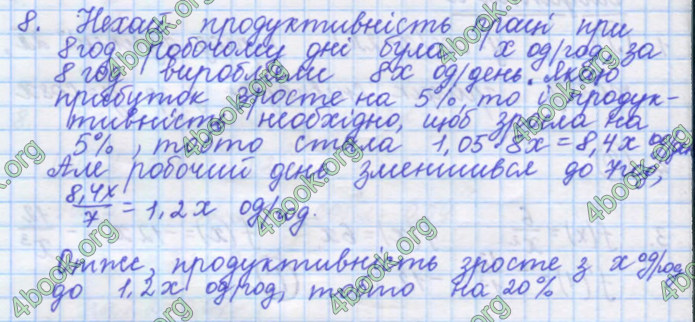 8. Нехай продуктивність праці при
8 год робочому дні була x од/год, за
8 год виробляли 8x од/день. Якщо
прибуток зросте на 5%, то і продук-
тивність необхідно, щоб зросла на
5%, тобто стала 1,05·8x = 8,4x од/день
Але робочий день зменшився до 7 год,
8,4x/7 = 1,2x од/год.
Отже, продуктивність зросте з x од/год
до 1,2x од/год, тобто на 20%
4book.org